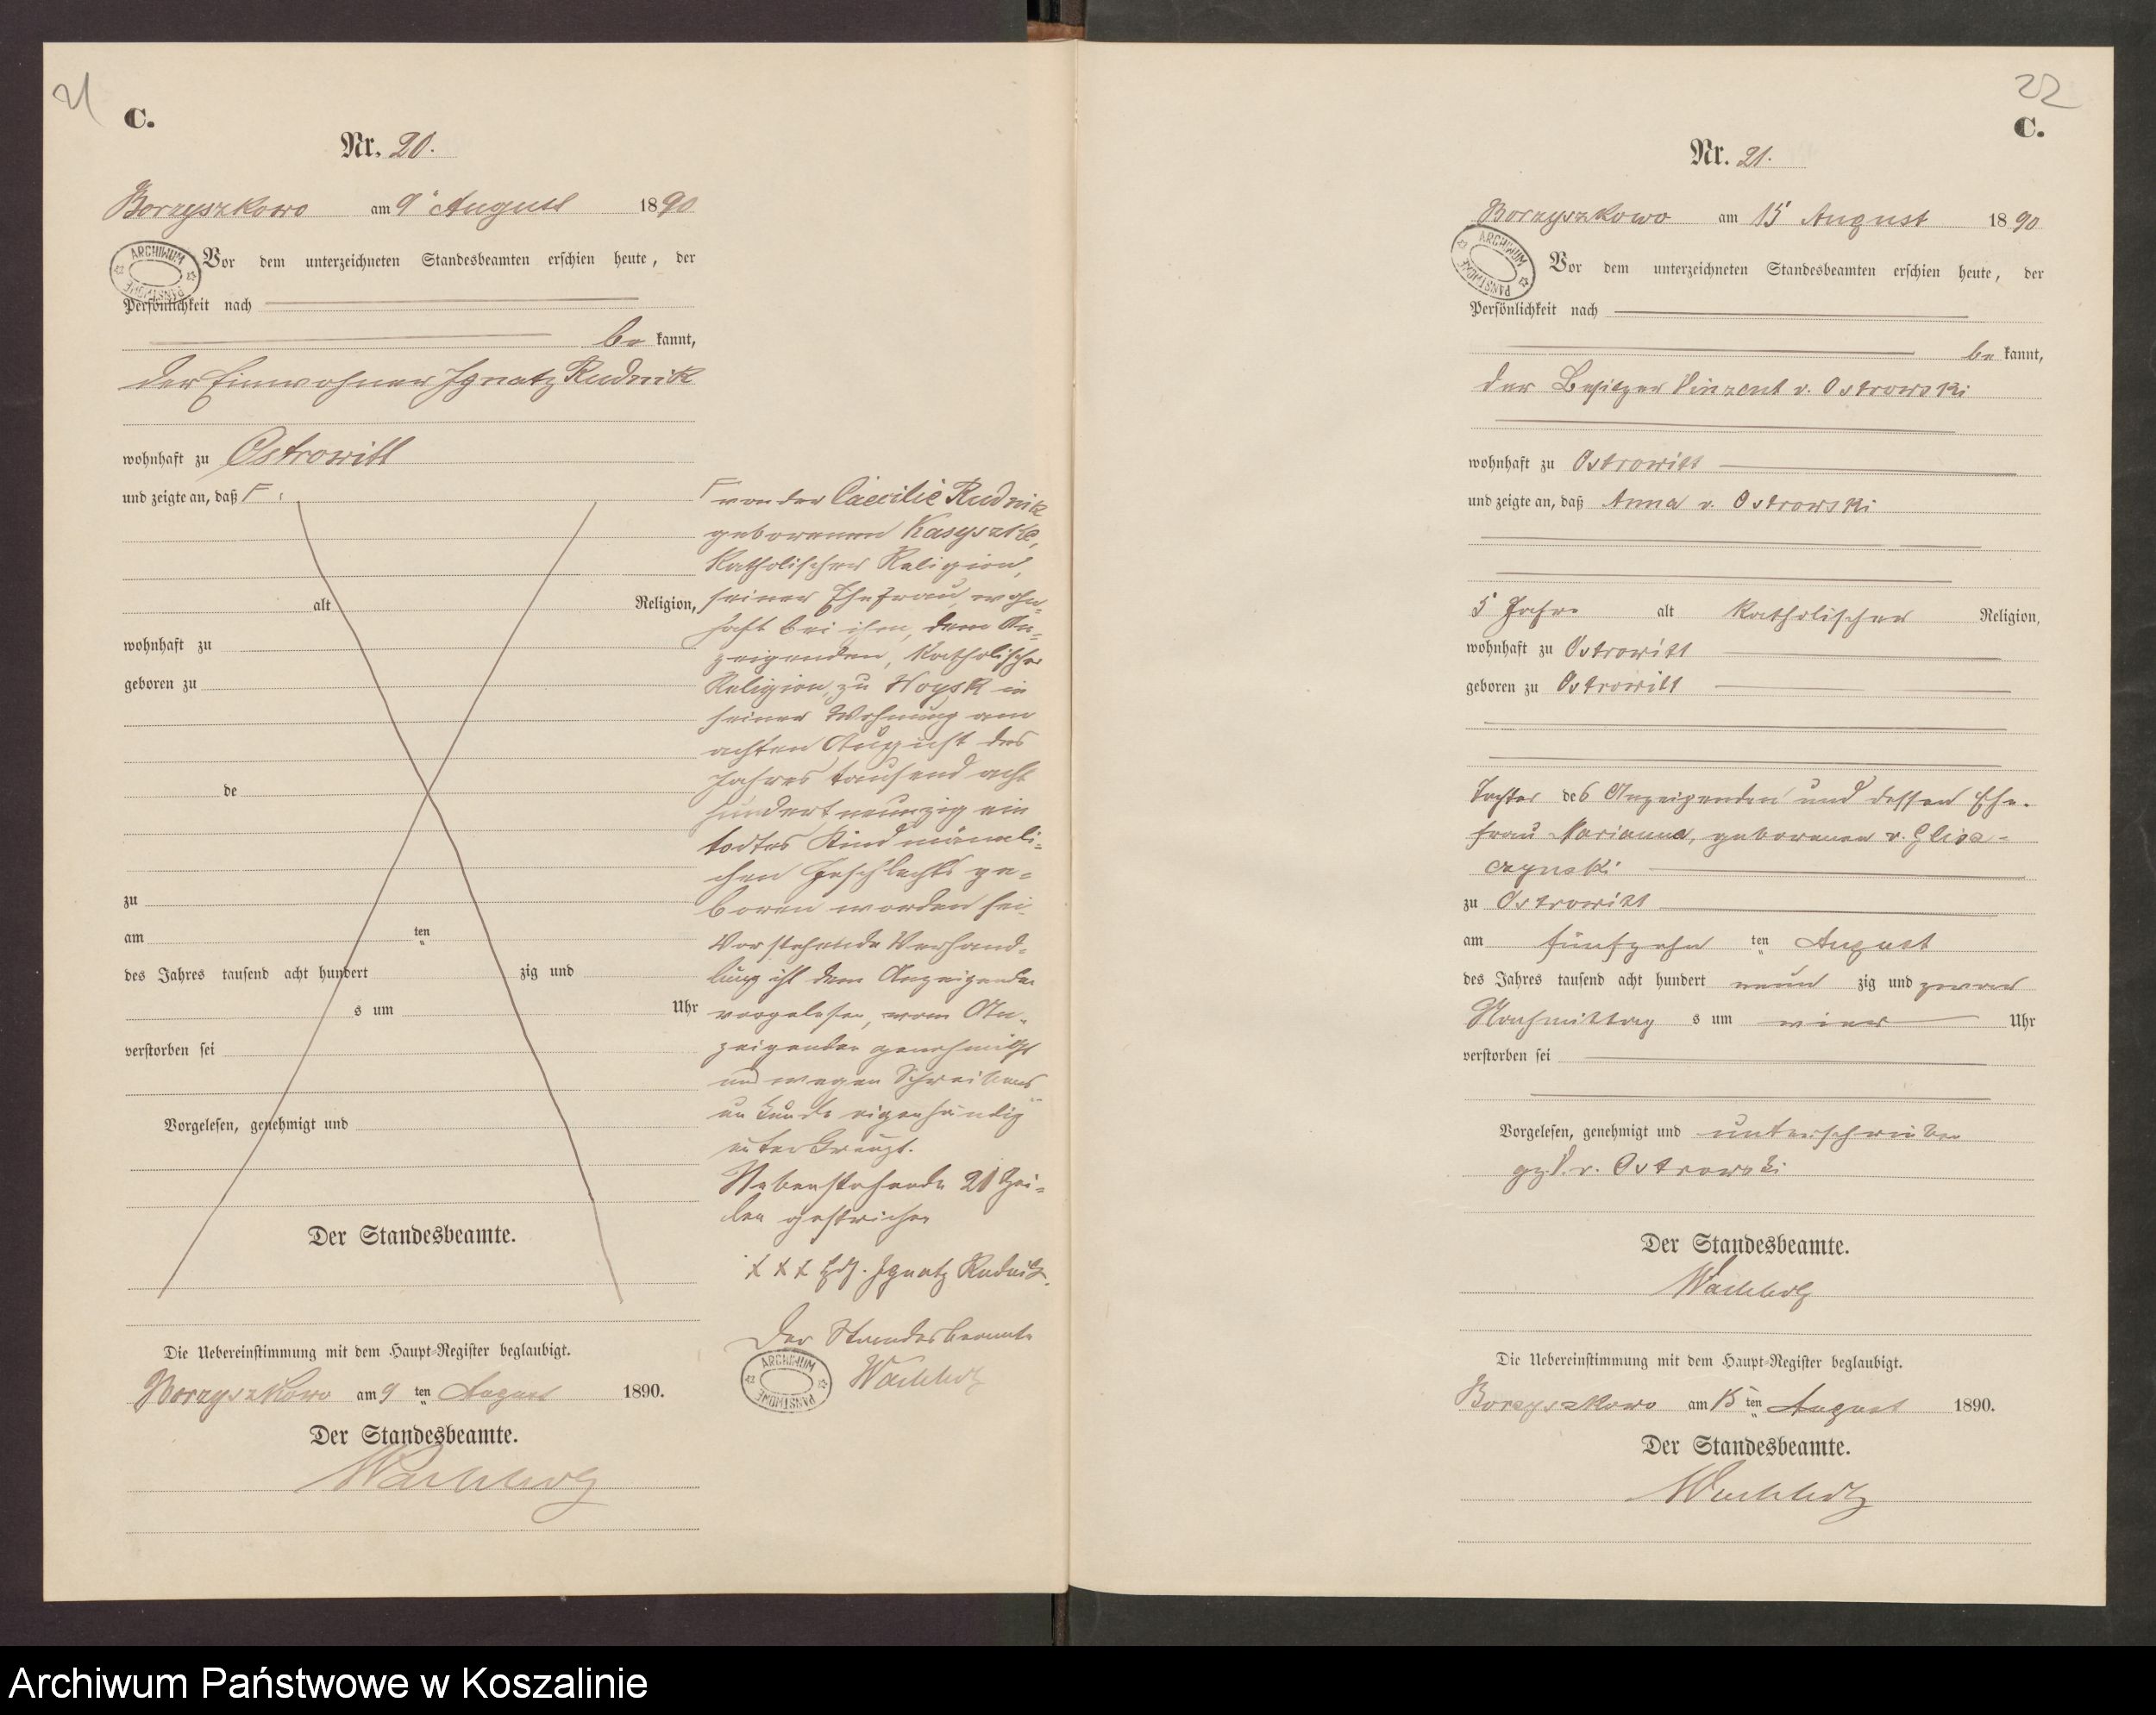 21
C.
Nr. 20.
Borzyszkowo am 9 August 1890
Vor dem unterzeichneten Standesbeamten erschien heute, der
Persönlichkeit nach
be kannt,
der Einwohner Ignatz Rudnik
wohnhaft zu Ostrowitt
und zeigte an, daß F
alt Religion,
wohnhaft zu
geboren zu
de
zu
am ten
des Jahres tausend acht hundert zig und
s um Uhr
verstorben sei
Vorgelesen, genehmigt und
Der Standesbeamte.
Die Uebereinstimmung mit dem Haupt-Register beglaubigt.
Borzyszkowo am 9 ten August 1890.
Der Standesbeamte.
Wachholz
F von der Caecilie Rudnik
geborenen
katholischer Religion,
seiner Ehefrau, wohn-
haft bei ihm, dem An-
zeigenden, katholischer
Religion, zu in
seiner Wohnung am
achten August des
Jahres tausend acht
hundert neunzig ein
todtes Kind männli-
chen Geschlechts ge-
boren worden sei.
Vorstehende Verhand-
lung ist dem Anzeigenden
vorgelesen, vom An-
zeigenden genehmigt
und wegen Schreibens
unkunde eigenhändig
unterkreuzt.
Nebenstehende 21 Zei-
len gestrichen
x x x Hdz. Ignatz Rudnik.
Der Standesbeamte
Wachholz
ARCHIWUM PAŃSTWOWE
22
C.
Nr. 21.
Borzyszkowo am 15 August 1890
Vor dem unterzeichneten Standesbeamten erschien heute, der
Persönlichkeit nach
be kannt,
der Besitzer Vinzent v. Ostrowski
wohnhaft zu Ostrowitt
und zeigte an, daß Anna v. Ostrowski
5 Jahre alt katholischer Religion,
wohnhaft zu Ostrowitt
geboren zu Ostrowitt
Tochter des Anzeigenden und dessen Ehe-
frau Marianna, geborenen v. Glisz-
czynski
zu Ostrowitt
am fünfzehn ten August
des Jahres tausend acht hundert neun zig und zwar
Nachmittag s um vier Uhr
verstorben sei
Vorgelesen, genehmigt und unterschrieben
gz. V. v. Ostrowski
Der Standesbeamte.
Wachholz
Die Uebereinstimmung mit dem Haupt-Register beglaubigt.
Borzyszkowo am 15 ten August 1890.
Der Standesbeamte.
Wachholz
Archiwum Państwowe w Koszalinie